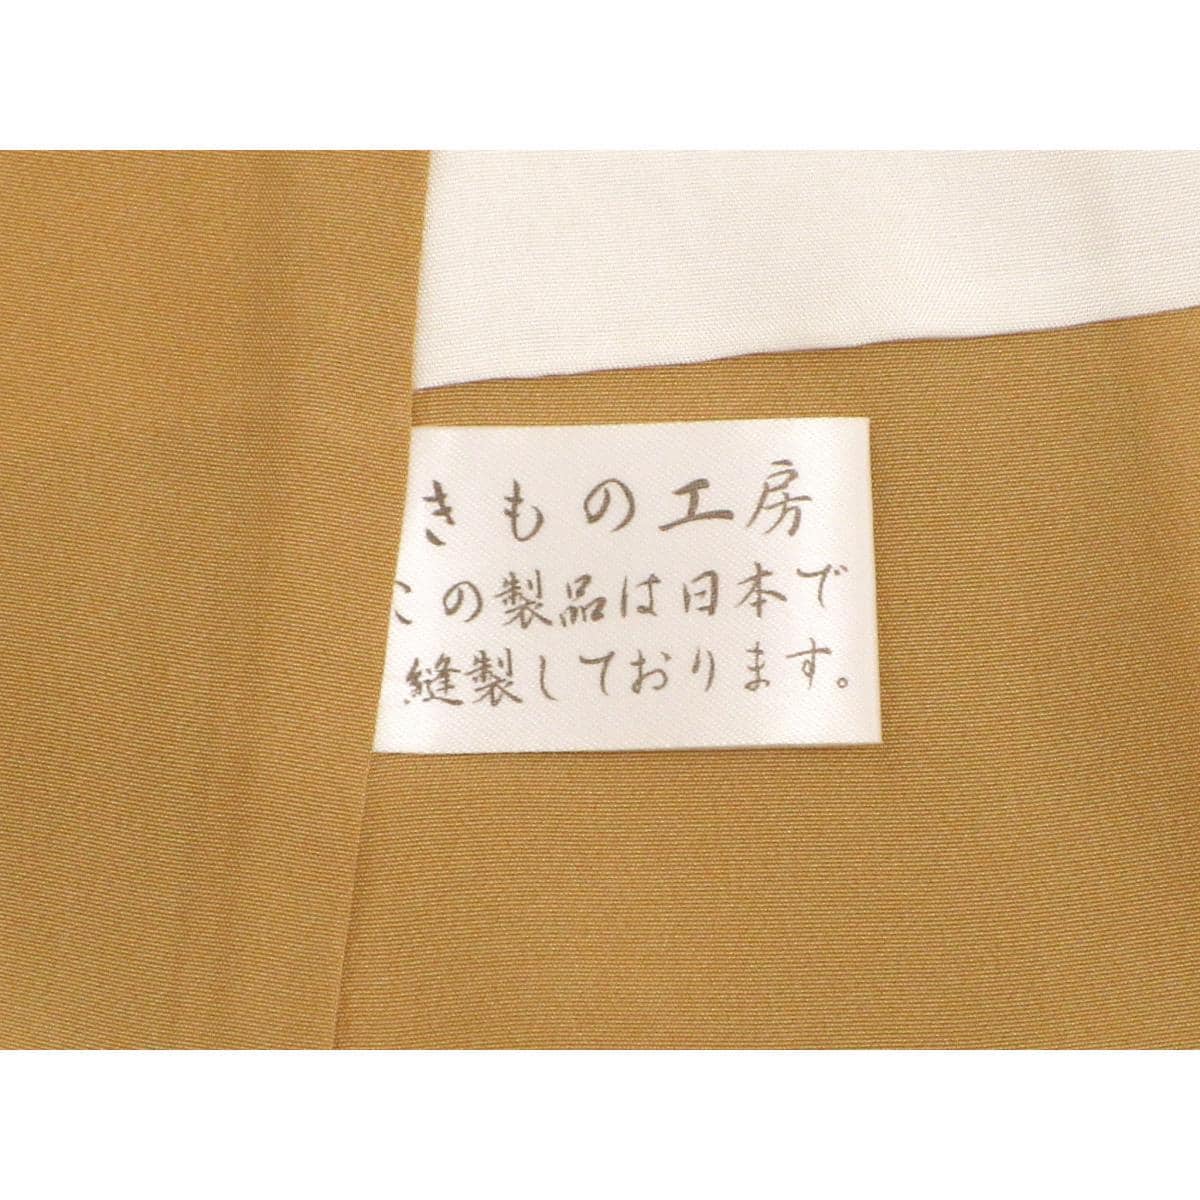 きもの工房
この製品は日本で
縫製しております。